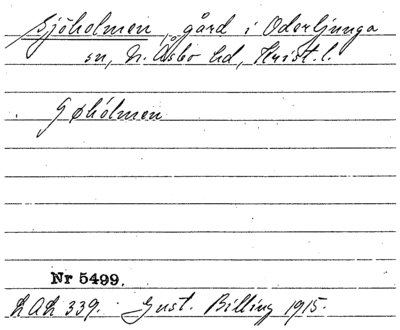 Sjöholmen, gård i Oderljunga
sn, N. Åsbo hd, Krist. l.
Gøhólmen
Nr 5499.
LAL 339. Gust. Billing 1915.